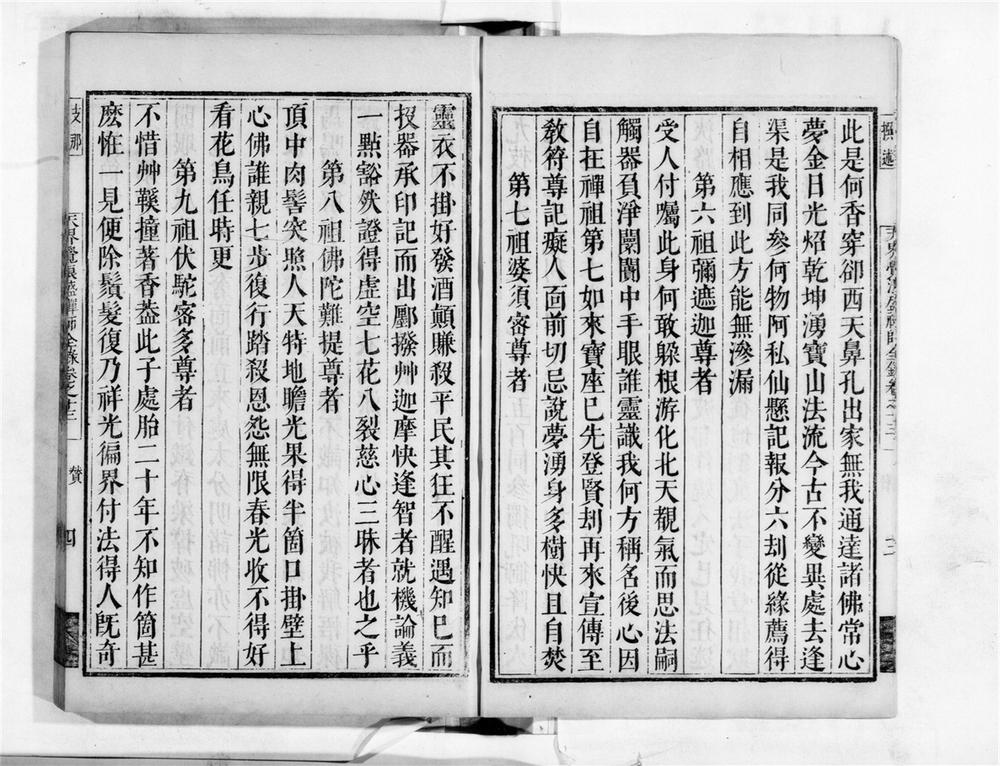 撰述
此是何香穿卻西天鼻孔出家無我通達諸佛常心
夢金日光炤乾坤湧寶山法流今古不變異處去逢
渠是我同參何物阿私仙懸記報分六刦從緣薦得
自相應到此方能無滲漏
第六祖彌遮迦尊者
受人付囑此身何敢躲根游化北天覩氣而思法嗣
觸器負淨闤闠中手眼誰靈識我何方稱名後心因
自在禪祖第七如來寶座已先登賢刦再來宣傳至
敎符尊記癡人面前切忌說夢湧身多樹快且自焚
第七祖婆須密尊者
靈衣不掛好發酒顛賺殺平民其狂不醒遇知己而
投器承印記而出郻撥艸迦摩快逢智者就機論義
一點豁然證得虛空七花八裂慈心三昧者也之乎
第八祖佛陀難提尊者
頂中肉髻突照人天特地瞻光果得半箇口掛壁上
心佛誰親七步復行踏殺恩怨無限春光收不得好
看花鳥任時更
第九祖伏駝密多尊者
不惜艸鞵撞著香葢此子處胎二十年不知作箇甚
麽惟一見便除鬚髮復乃祥光徧界付法得人旣奇
支那
天界覺浪盛禪師全錄卷之十三
贊
四